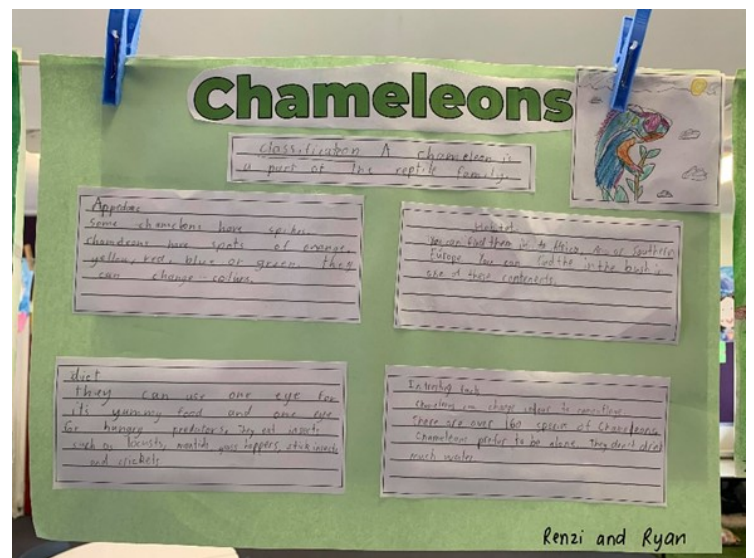 Chameleons
Classification A chameleon is
a part of the reptile family.
Some chameleons have spikes.
chameleons have spots of orange,
yellow, red, blue or green. they
can change colours.
Habitat
You can find them in to Africa, or Southern
Europe You can find the in the bush in
one of these
diet
they can use one eye for
it's yummy food and one eye
for hungry predators. They eat insects
such as locusts, mantids, grass hoppers, stick insects
and crickets
facts
change colours to
There are over 160 species of Chameleons
Chameleons prefer to be alone. They don't drink
much water
Renzi and Ryan